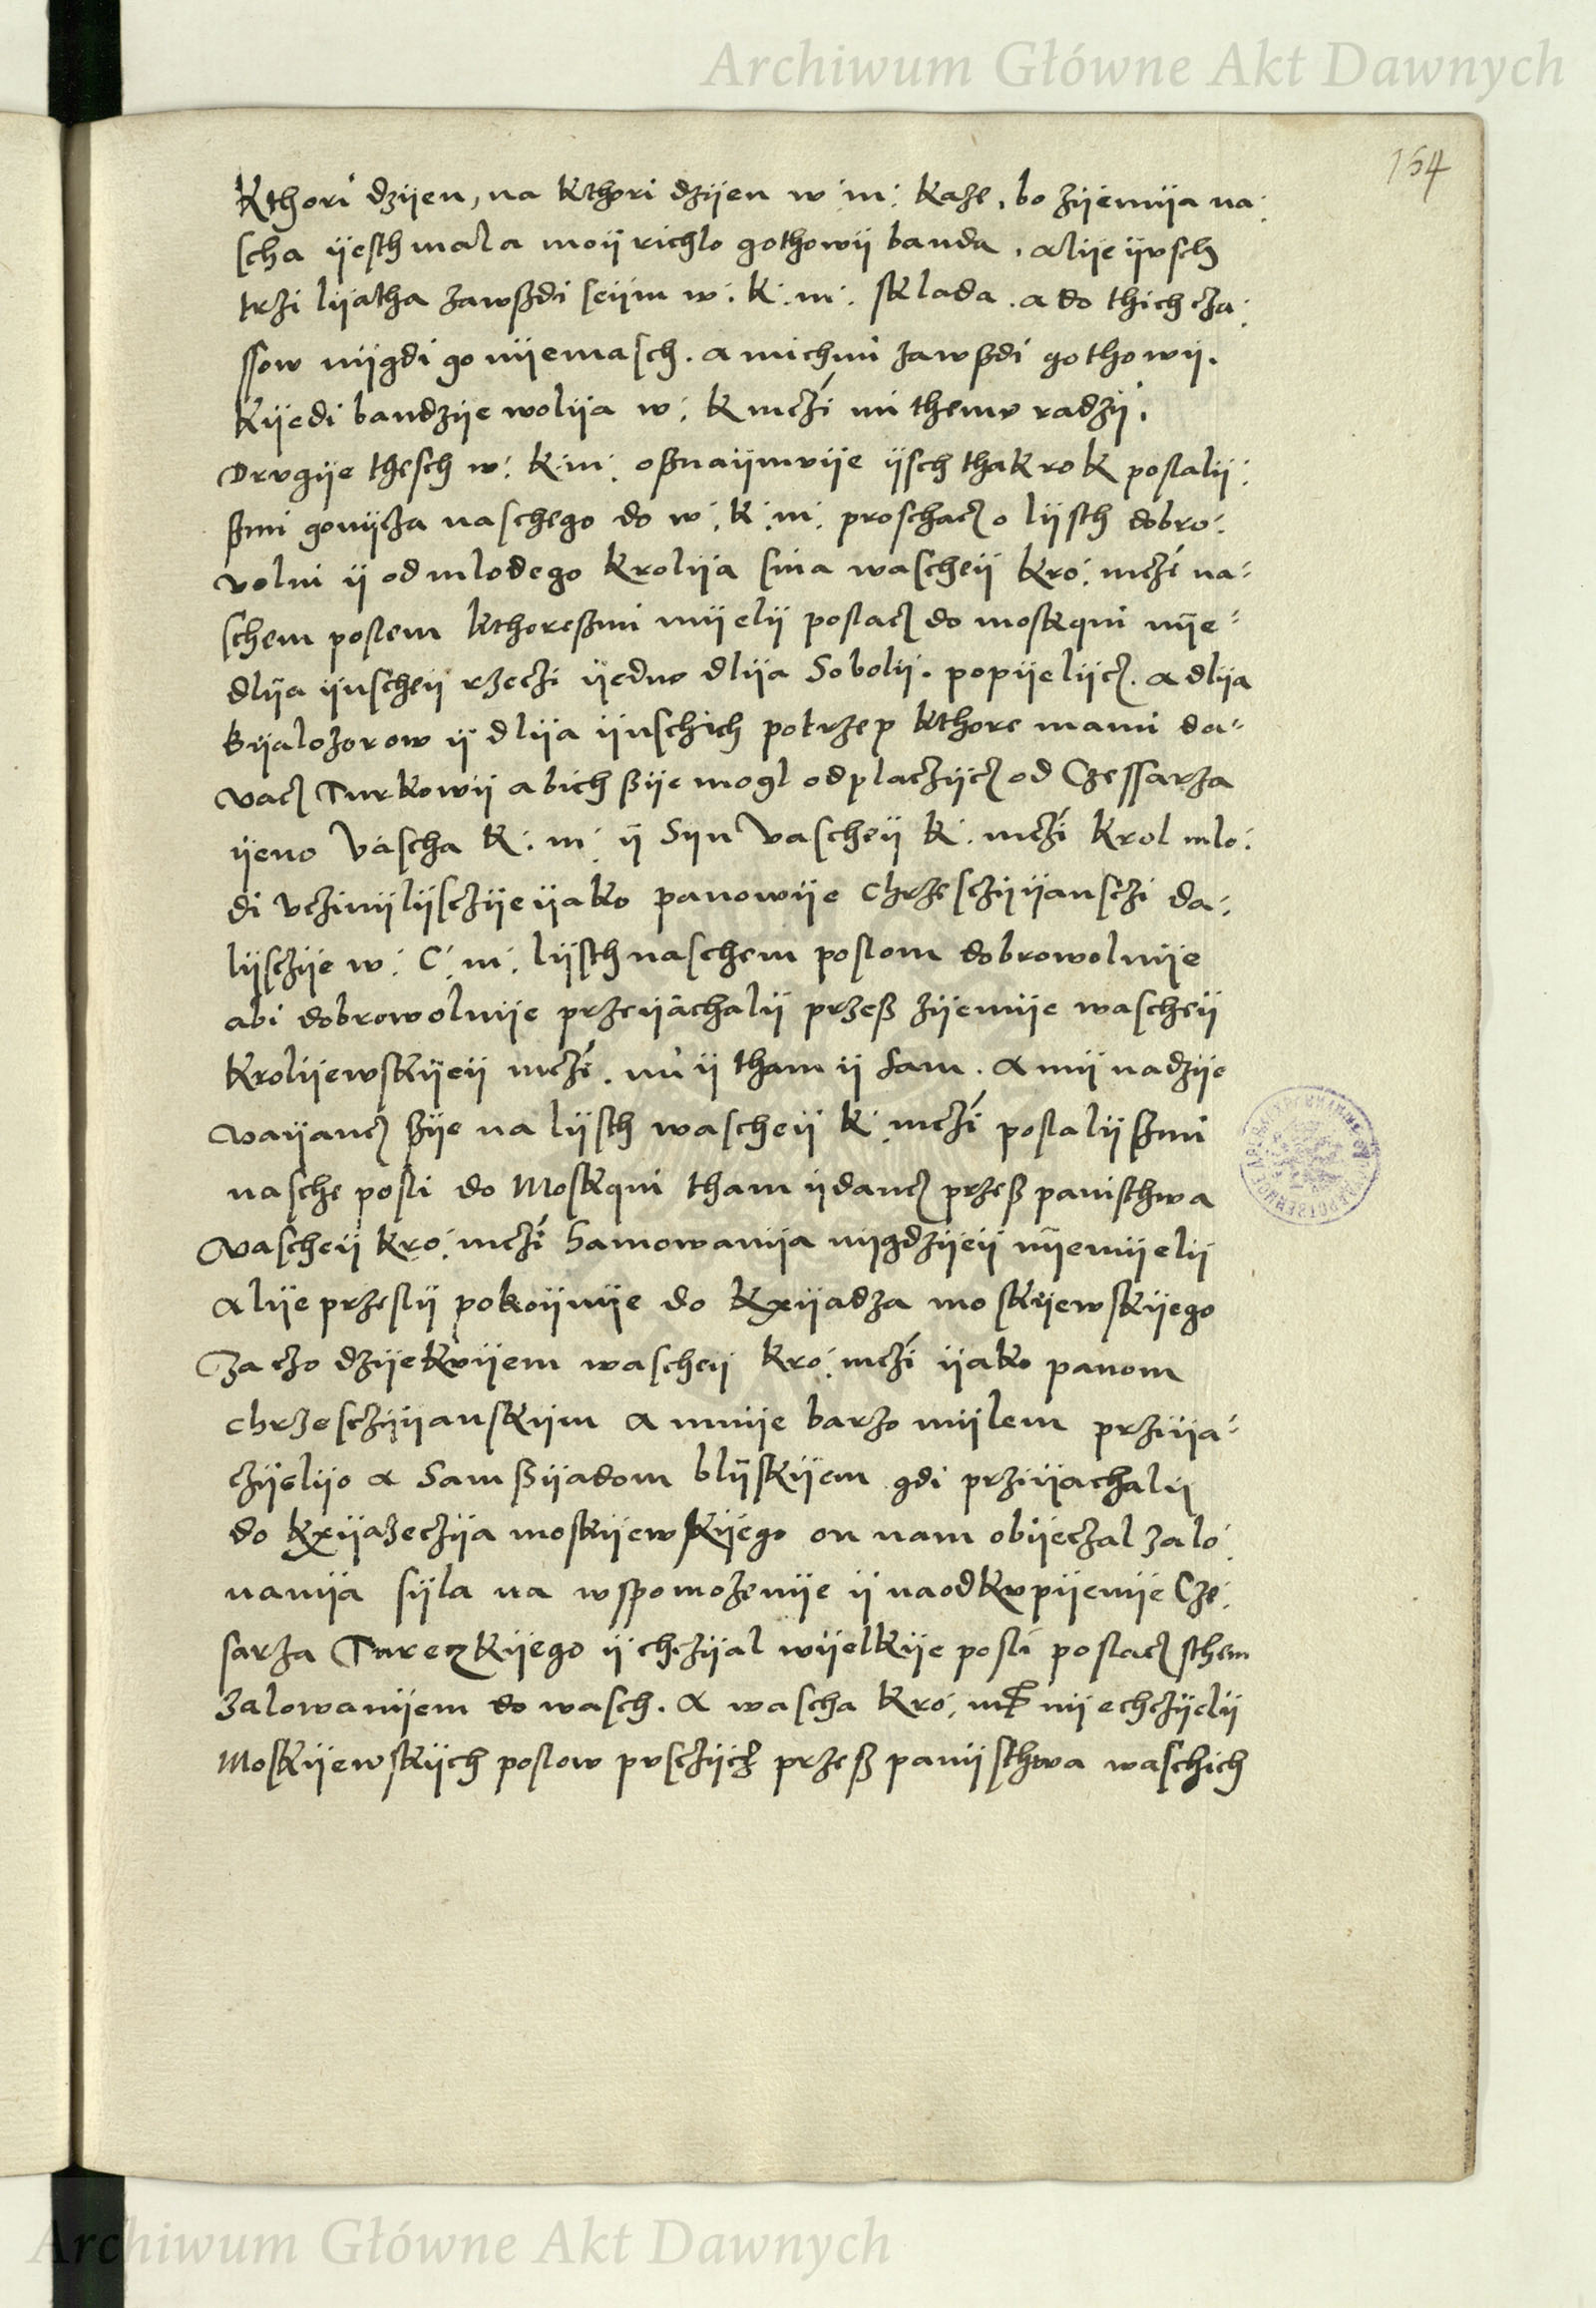 Archiwum Główne Akt Dawnych
154
Kthori dzijen, na kthori dzijen w: m: kaze, bo zijemija na:
scha ijesth mala moij richlo gothowij banda, alije ijvsch
trzi lijatha zawßdi seijm w: K: m: sklada. a do thich cza:
ssow nijgdi go nijemasch. a michmi zawßdi gothowij.
Kijedi bandzije wolija w: K mczi mi themv radzij.
Drvgije thesch w: K: m: oßnaijmvije ijsch thak rok poslalij:
ßmi gonijcza naschego do w: k: m: proschacz o lijsth dobro:
volni ij od mlodego Krolija sina wascheij Kro: mczi na:
schem poslem kthoreßmi mijelij poslacz do moskqui nije:
dlija ijnscheij rzeczi ijedno dlija Sobolij. popijelijcz. a dlija
bijalozorow ij dlija ijnschich potrzep kthore mami da:
vacz Turkowij abich ßije mogl odplaczijcz od Czessarza
ijeno Vascha K: m: ij Sijn Vascheij K: mczi Krol mlo:
di vczinijlijsczije ijako panowije chrzesczijijansczi da:
lijsczije w: C: m: lijsth naschem poslom dobrowolnije
abi dobrowolnije przeijachalij przeß zijemije wascheij
Krolijewskijeij mczi. nij ij tham ij sam. a mij nadzije
waijancz ßije na lijsth wascheij K: mczi poslalijßmi
nasche posli do Moskqui tham ijdancz przeß panisthwa
Vascheij Kro: mczi hamowanija nijgdzijeij nijemijelij
alije przeslij pokoijnije do Kxijadza moskijewskijego
Za czo dzijekvijem wascheij Kro: mczi ijako panom
chrzesczijijanskijm a mnije barzo mijlem przijia:
czijelijo a Sam ßijadom blijskijem gdi przijijachalij
do kxijazeczija moskijewskijego on nam obijeczal zalo:
vanija sijla na wspomozenije ij na odkvpijenije Cze:
sarza Tureczkijego ij chczijal wijelkije posli poslacz sthem
zalowanijem do wasch. a wascha Kro: m nijechczijelij
Moskijewskijch poslow pvsczijcz przeß panijsthwa waschich
Archiwum Główne Akt Dawnych